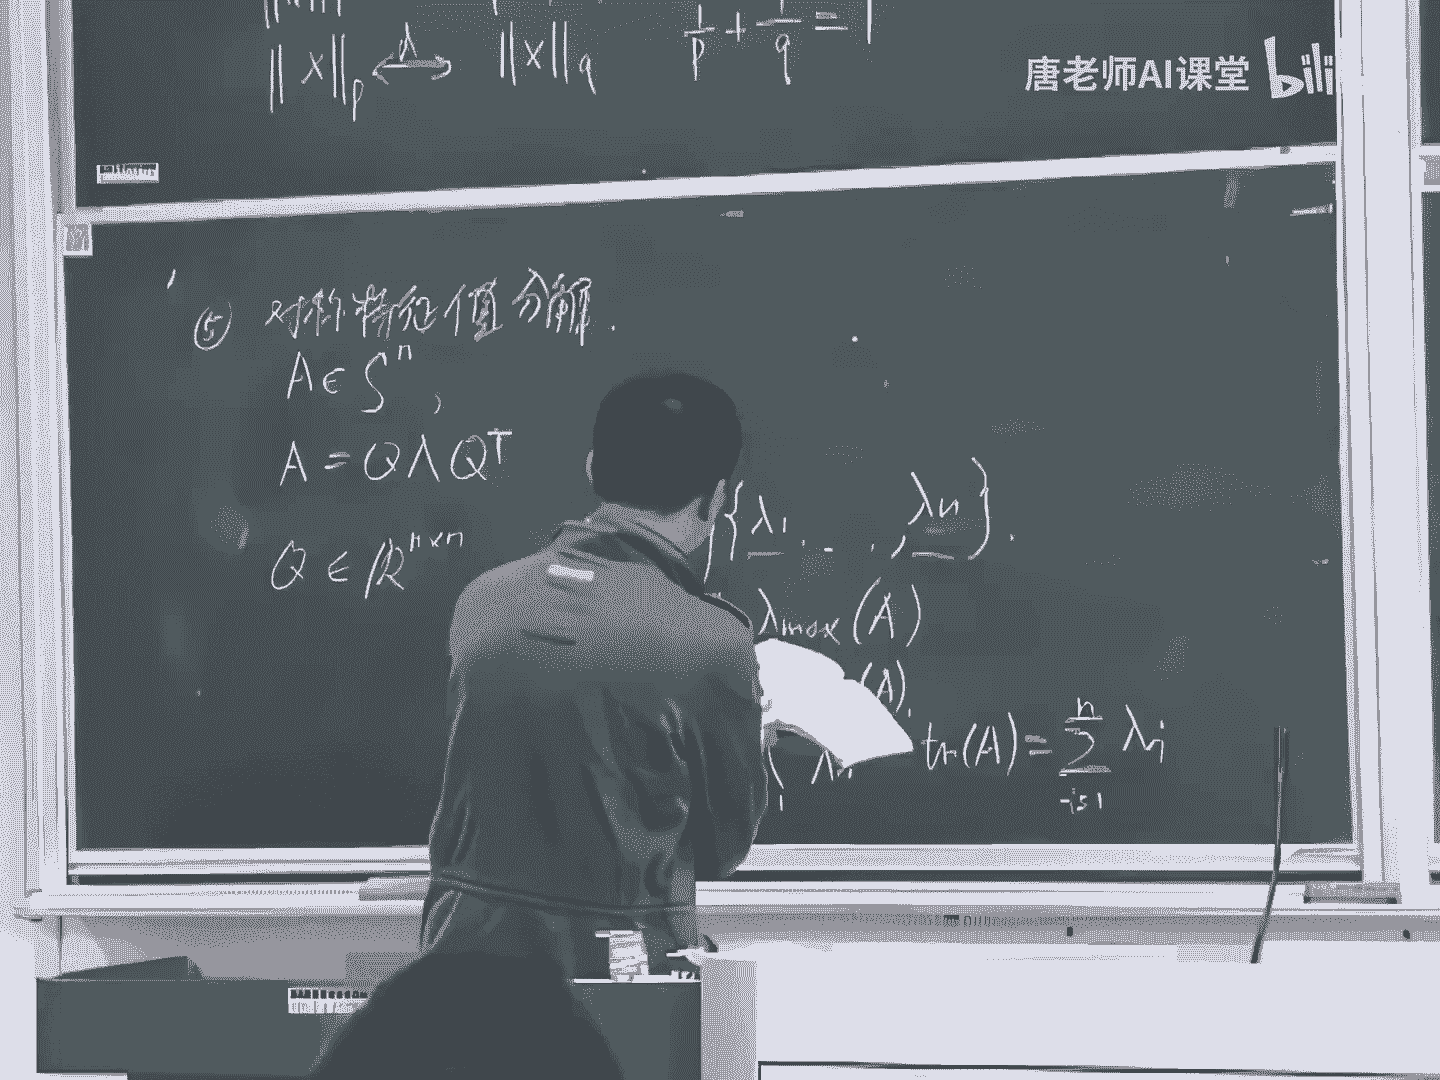 ‖x‖p ⟷d ‖x‖q 1/p + 1/q = 1
唐老师AI课堂 bili
⑤ 对称特征值分解.
A ∈ Sⁿ,
A = QΛQᵀ
{λ₁, ..., λn}.
Q ∈ ℝⁿˣⁿ
λmax(A)
(A).
tr(A) = ∑ⁿᵢ₌₁ λi